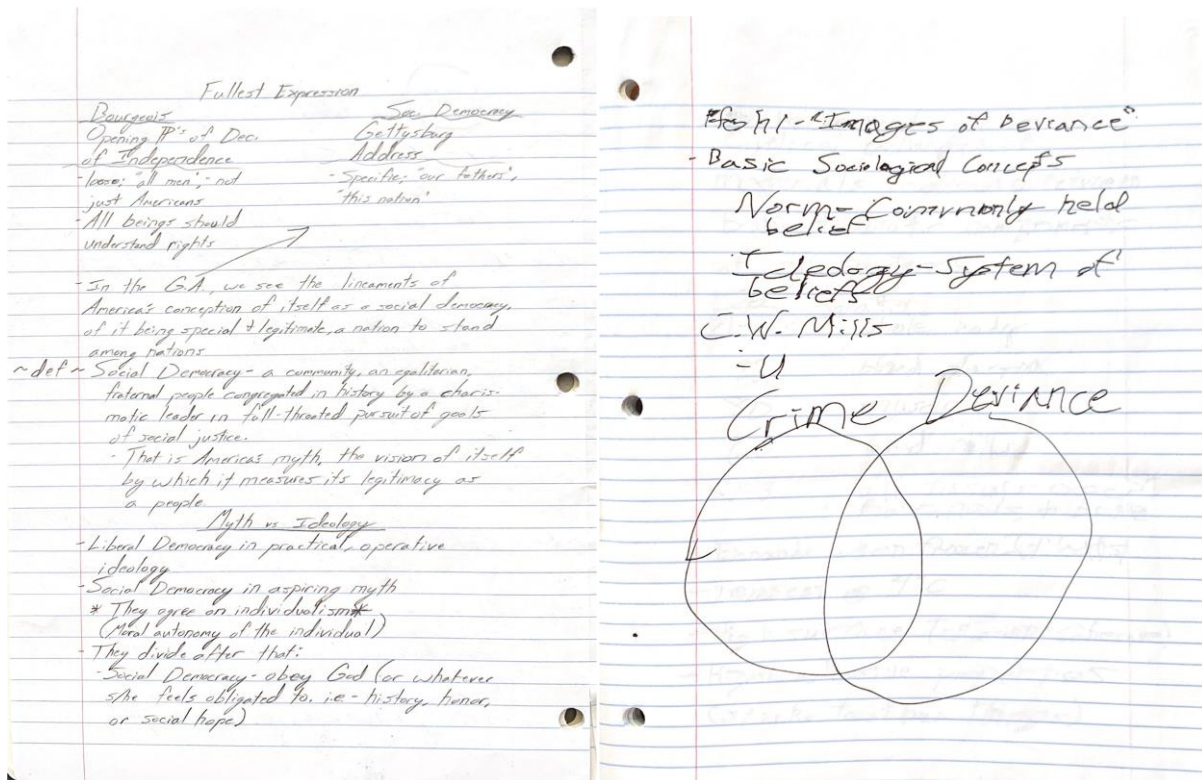 Fullest Expression
Bourgeois
Opening ¶'s of Dec.
of Independence
- loose; "all men", not
just Americans
- All beings should
understand rights
Soc. Democracy
Gettysburg
Address
- Specific; "our fathers",
"this nation"
- In the G.A., we see the lineaments of
America's conception of itself as a social democracy,
of it being special & legitimate, a nation to stand
among nations
~def~ Social Democracy - a community, an egalitarian,
fraternal people congregated in history by a charis-
matic leader in full-throated pursuit of goals
of social justice.
- That is America's myth, the vision of itself
by which it measures its legitimacy as
a people
Myth vs Ideology
- Liberal Democracy in practical, operative
ideology
- Social Democracy in aspiring myth
* They agree on individualism*
(Moral autonomy of the individual)
- They divide after that:
- Social Democracy - obey God (or whatever
s/he feels obligated to, i.e.- history, honor,
or social hope)
"Images of Deviance"
- Basic Sociological Concepts
Norm - Commonly held
belief
- System of
beliefs
C.W. Mills
- U
Crime Deviance